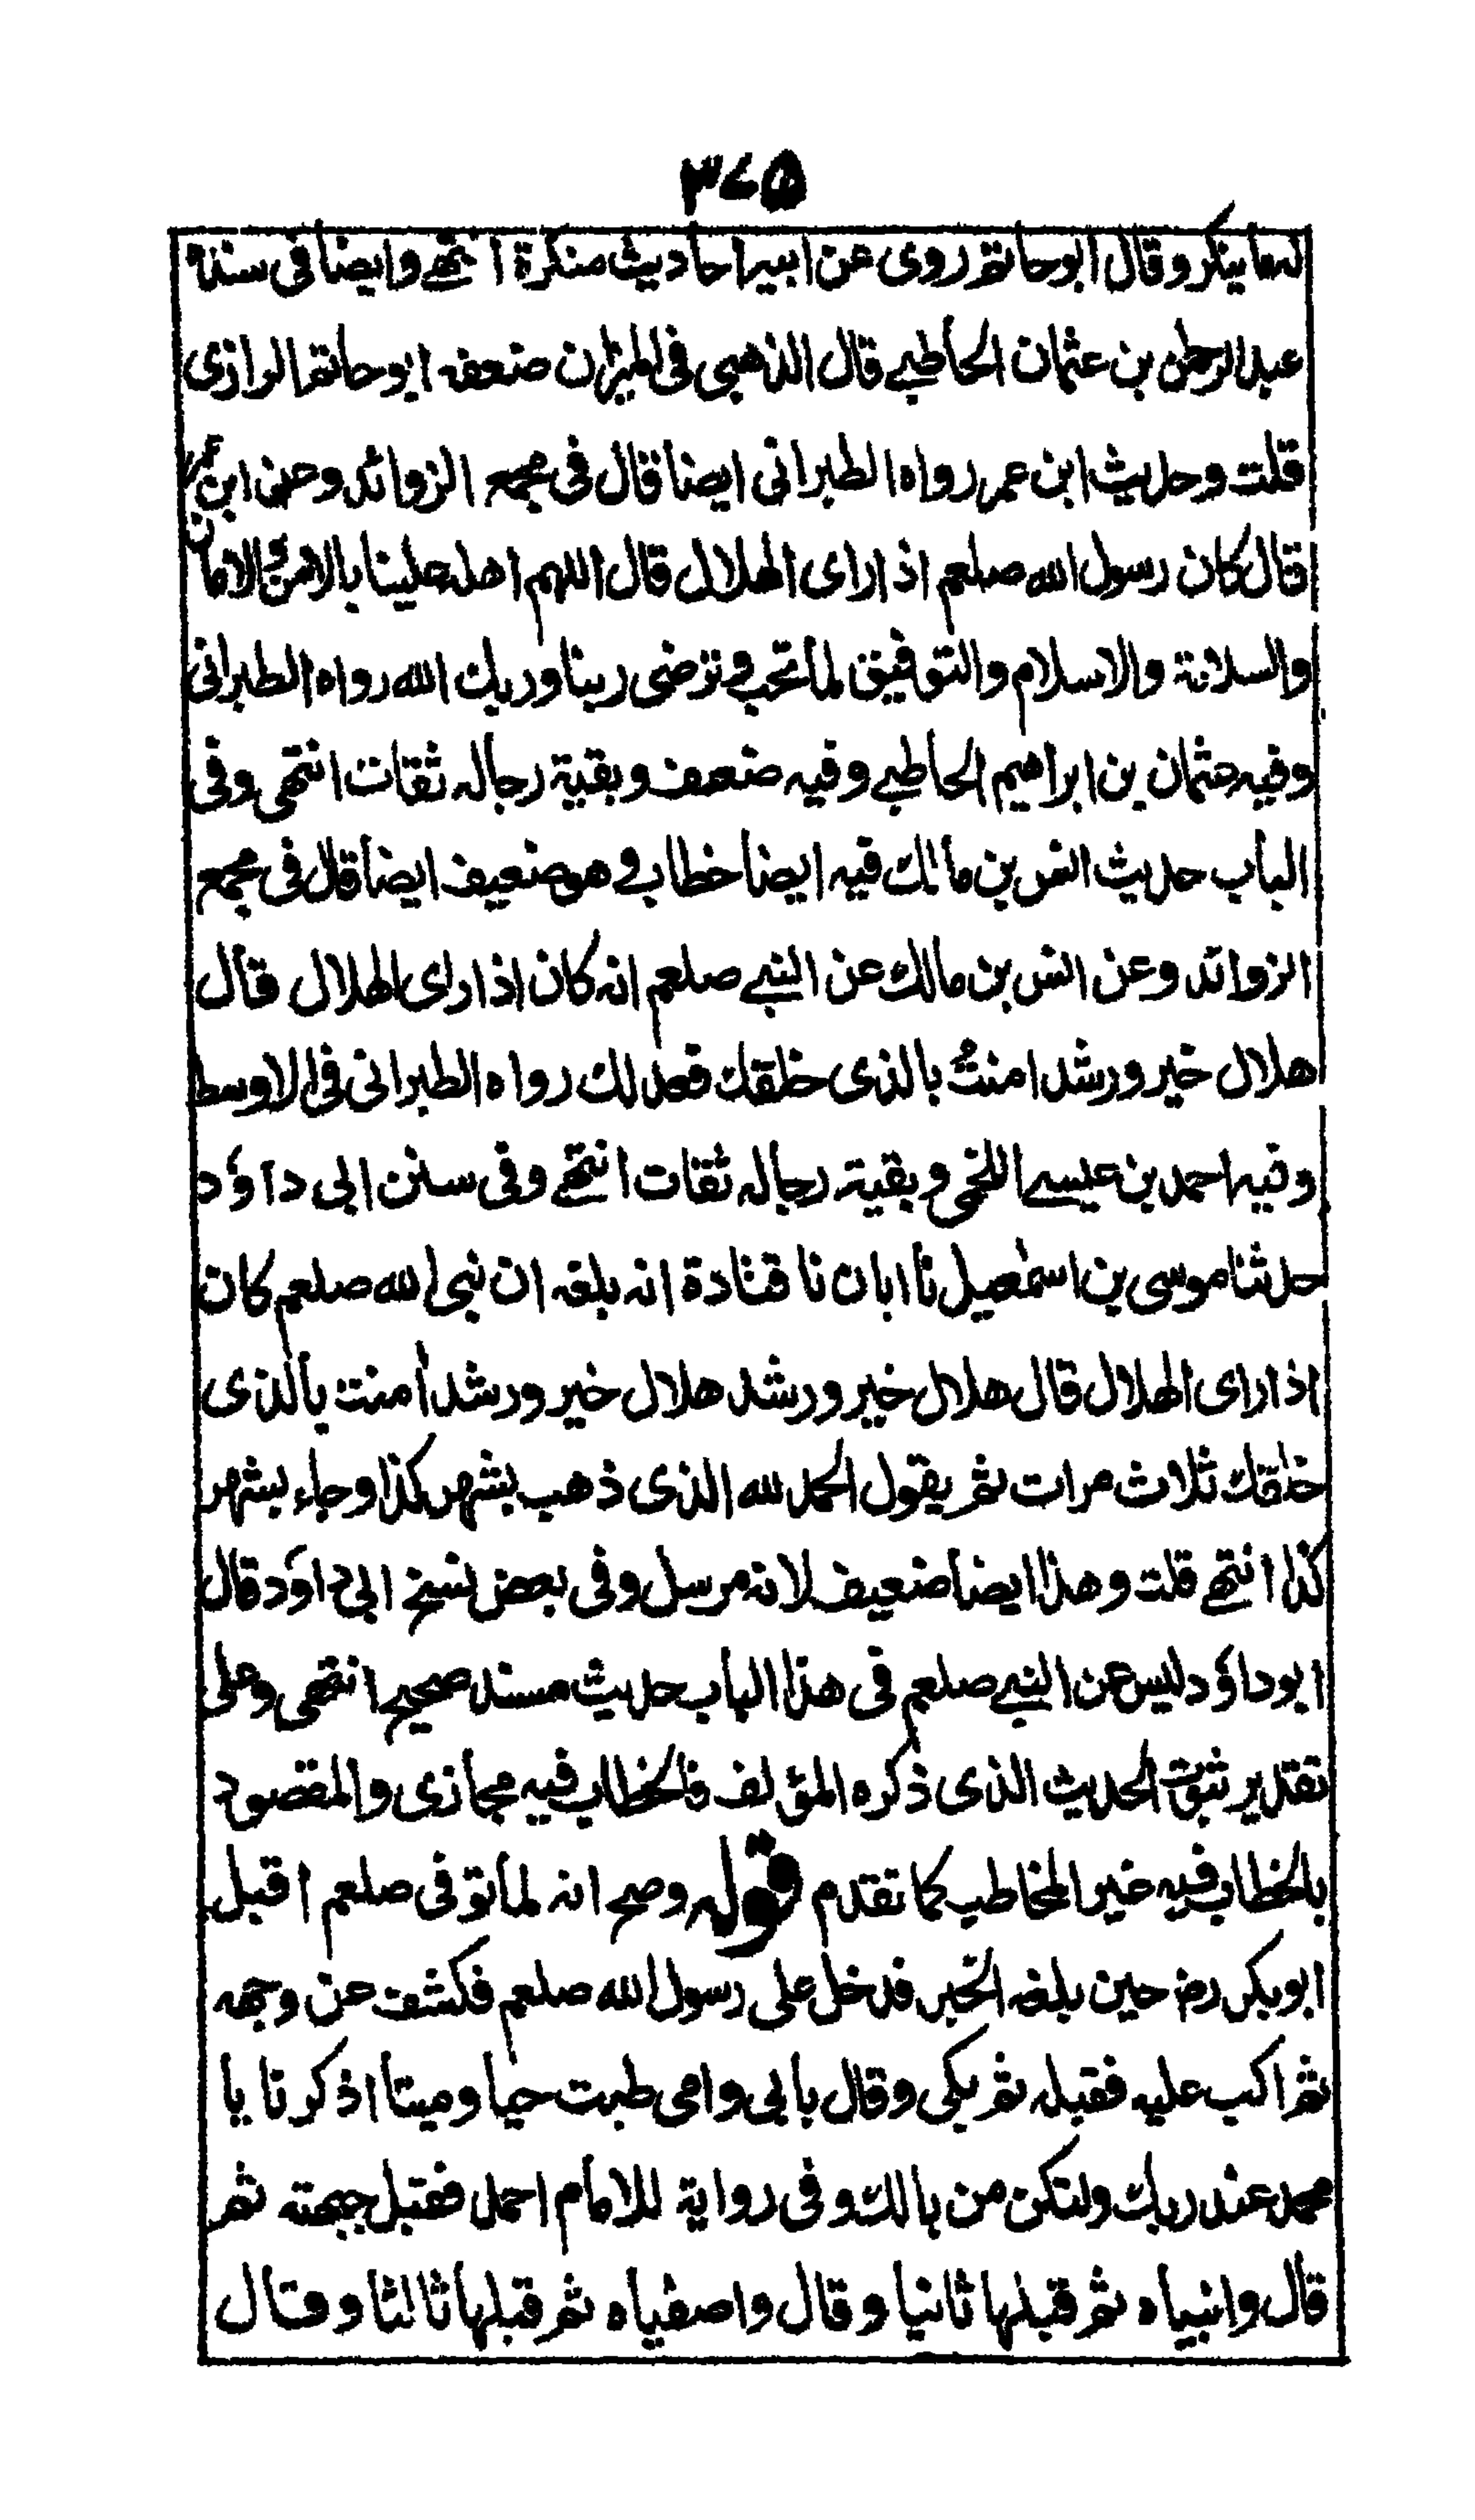 ۳۷۵
له ما ينكر وقال ابو حاتم روى عن ابيه احاديث منكرة انتهے وايضا فى سنده
عبد الرحمن بن عثمان الحاطبے قال الذهبى فى الميزان ضعفه ابو حاتم الرازى
قلت وحديث ابن عمر رواه الطبرانى ايضا قال فى مجمع الزوائد وعن ابن عمر
قال كان رسول الله صلعم اذا راى الهلال قال اللهم اهله علينا بالامن والايمان
والسلامة والاسلام والتوفيق لما تحب وترضى ربنا وربك الله رواه الطبرانى
وفيه عثمان بن ابراهيم الحاطبے وفيه ضعف وبقية رجاله ثقات انتهى وفى
الباب حديث انس بن مالك فيه ايضا خطاب وهو ضعيف ايضا قال فى مجمع
الزوائد وعن انس بن مالك عن النبے صلعم انه كان اذا راى الهلال قال
هلال خير ورشد امنتُ بالذى خلقك فعدلك رواه الطبرانى فى الاوسط
وفيه احمد بن عيسے اللخمى وبقية رجاله ثقات انتهے وفى سنن ابى داؤد
حدثنا موسى بن اسمٰعيل نا ابان نا قتادة انه بلغه ان نبى الله صلعم كان
اذا راى الهلال قال هلال خير ورشد هلال خير ورشد اٰمنت بالذى
خلقك ثلاث مرات ثم يقول الحمد لله الذى ذهب بشهر كذا وجاء بشهر
كذا انتهے قلت وهذا ايضا ضعيف لانه مرسل وفى بعض نسخ ابى داؤد قال
ابو داؤد ليس عن النبے صلعم فى هذا الباب حديث مسند صحيح انتهى وعلى
تقدير ثبوت الحديث الذى ذكره المؤلف فالخطاب فيه مجازى والمقصود
بالخطاب فيه خير المخاطب كما تقدم قوله وصح انه لما توفى صلعم اقبل
ابو بكر رض حين بلغه الخبر فدخل على رسول الله صلعم فكشف عن وجهه
ثم اكب عليه فقبله ثم بكى وقال بابى وامى طبت حيا وميتا اذكرنا يا
محمد عند ربك ولنكن من بالك وفى رواية للامام احمد فقبل جبهته ثم
قال وانبياه ثم قبلها ثانيا وقال واصفياه ثم قبلها ثالثا وقال